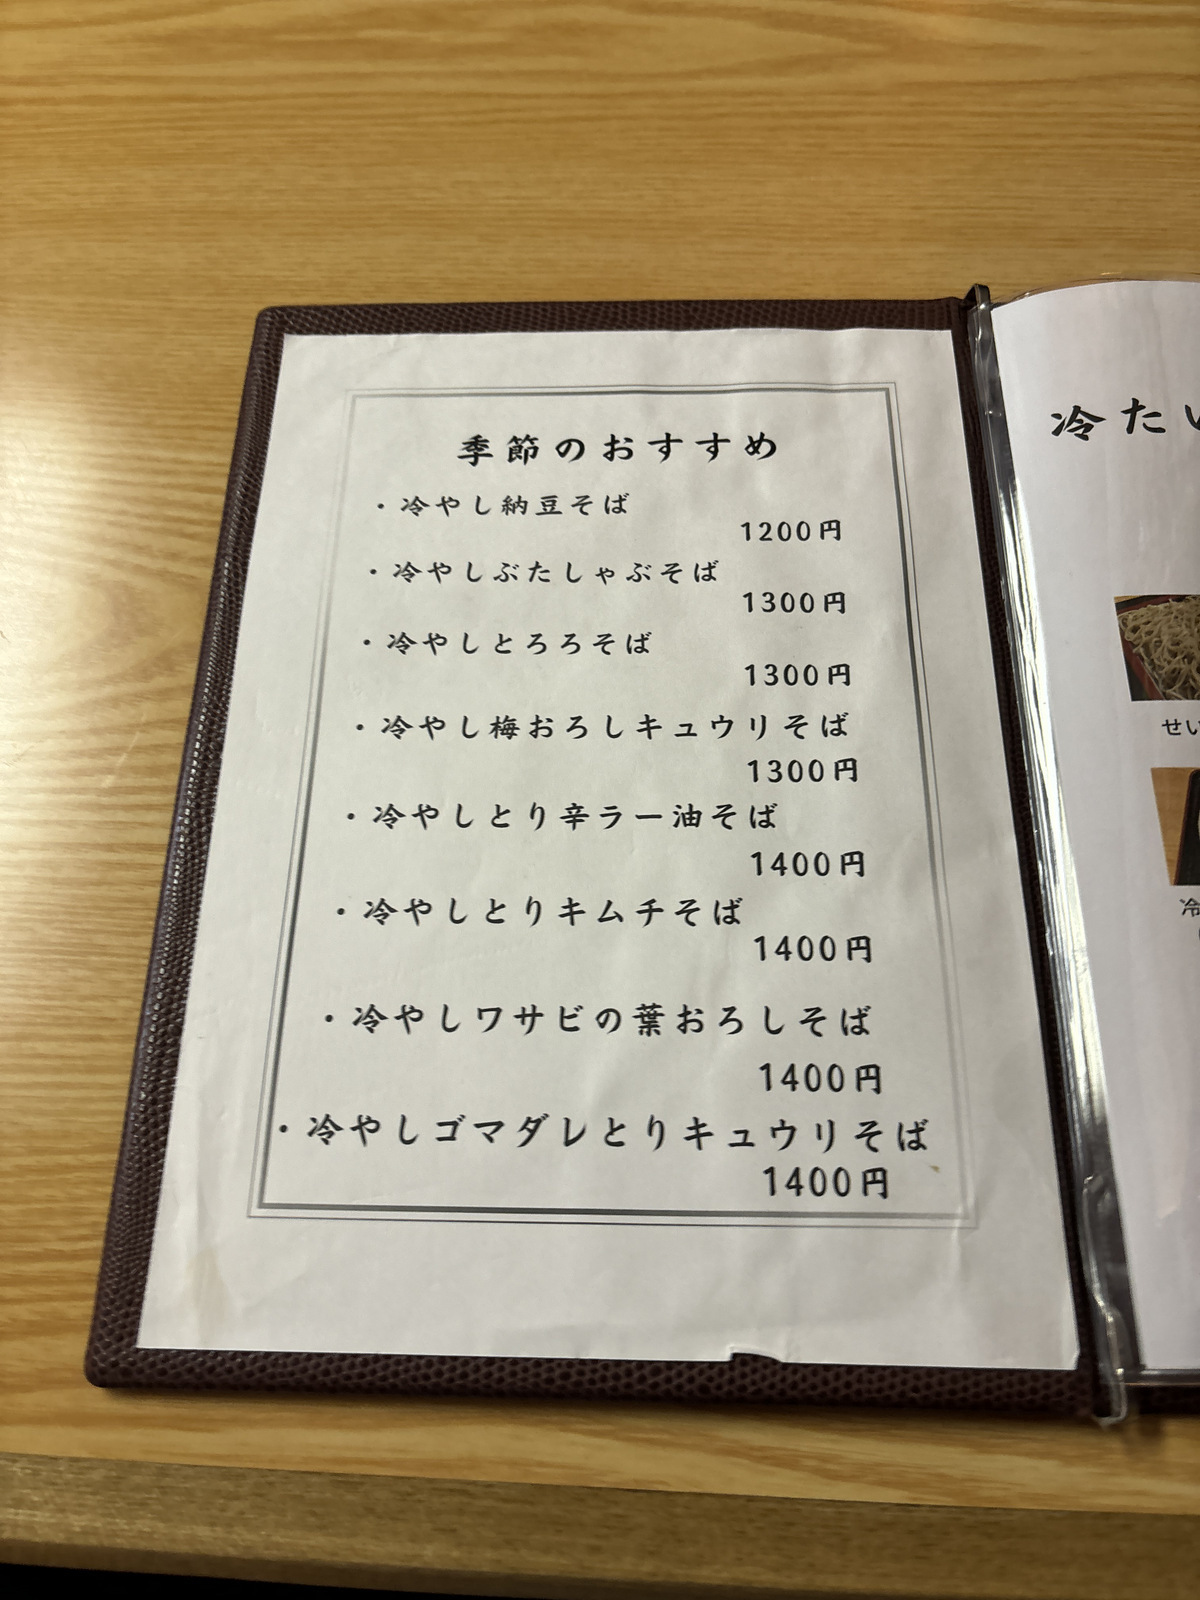 季節のおすすめ
・冷やし納豆そば
1200円
・冷やしぶたしゃぶそば
1300円
・冷やしとろろそば
1300円
・冷やし梅おろしキュウリそば
1300円
・冷やしとり辛ラー油そば
1400円
・冷やしとりキムチそば
1400円
・冷やしワサビの葉おろしそば
1400円
・冷やしゴマダレとりキュウリそば
1400円
冷たい
せい
冷